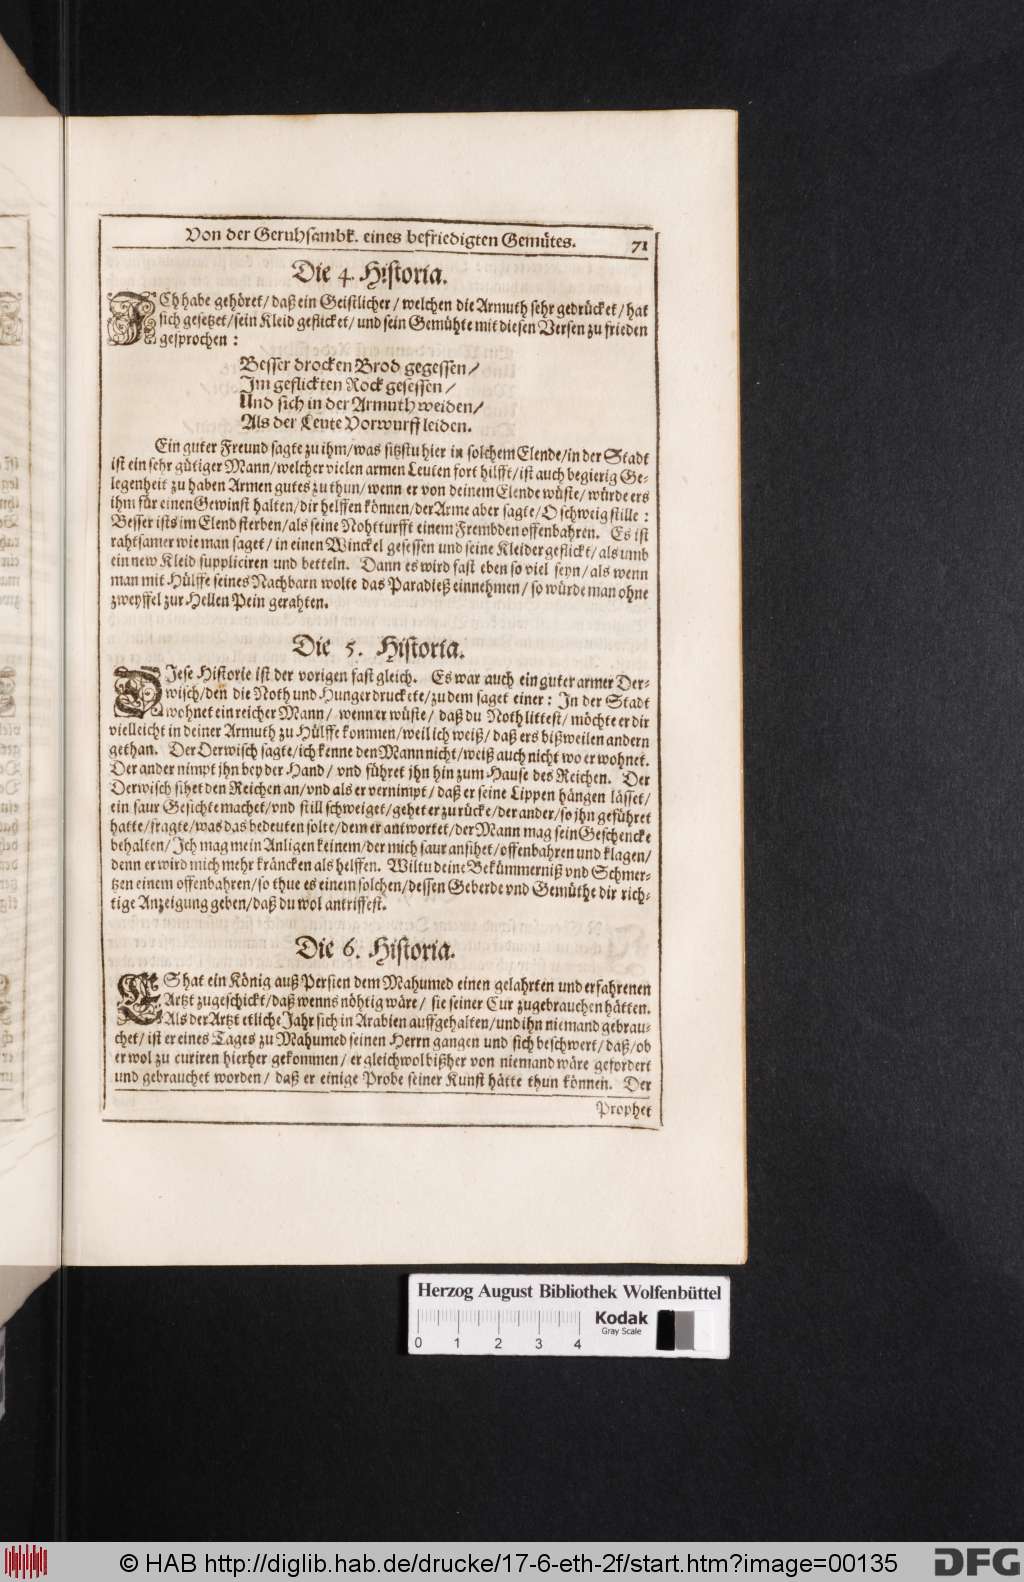 Von der Geruhsambk. eines befriedigten Gemütes. 71
Die 4. Historia.
ICh habe gehöret / daß ein Geistlicher / welchen die Armuth sehr gedrücket / hat
sich gesetzet / sein Kleid geflicket / und sein Gemühte mit diesen Versen zu frieden
gesprochen :
Besser drocken Brod gegessen /
Im geflickten Rock gesessen /
Und sich in der Armuth weiden /
Als der Leute Vorwurff leiden.
Ein guter Freund sagte zu ihm / was sitzstu hier in solchem Elende / in der Stadt
ist ein sehr gütiger Mann / welcher vielen armen Leuten fort hilfft / ist auch begierig Ge-
legenheit zu haben Armen gutes zu thun / wenn er von deinem Elende wüste / würde ers
ihm für einen Gewinst halten / dir helffen können / der Arme aber sagte / O schweig stille :
Besser ists im Elend sterben / als seine Nohtturfft einem Frembden offenbahren. Es ist
rahtsamer wie man saget / in einen Winckel gesessen und seine Kleider geflickt / als umb
ein new Kleid suppliciren und betteln. Dann es wird fast eben so viel seyn / als wenn
man mit Hülffe seines Nachbarn wolte das Paradieß einnehmen / so würde man ohne
zweyffel zur Hellen Pein gerahten.
Die 5. Historia.
DIese Historie ist der vorigen fast gleich. Es war auch ein guter armer Der-
wisch / den die Noth und Hunger druckete / zu dem saget einer : In der Stadt
wohnet ein reicher Mann / wenn er wüste / daß du Noth littest / möchte er dir
vielleicht in deiner Armuth zu Hülffe kommen / weil ich weiß / daß ers bißweilen andern
gethan. Der Derwisch sagte / ich kenne den Mann nicht / weiß auch nicht wo er wohnet.
Der ander nimpt jhn bey der Hand / vnd führet jhn hin zum Hause des Reichen. Der
Derwisch sihet den Reichen an / vnd als er vernimpt / daß er seine Lippen hängen lässet /
ein saur Gesichte machet / vnd still schweiget / gehet er zu rücke / der ander / so jhn geführet
hatte / fragte / was das bedeuten solte / dem er antwortet / der Mann mag sein Geschencke
behalten / Ich mag mein Anligen keinem / der mich saur ansihet / offenbahren und klagen /
denn er wird mich mehr kräncken als helffen. Wiltu deine Bekümmerniß vnd Schmer-
tzen einem offenbahren / so thue es einem solchen / dessen Geberde vnd Gemüthe dir rich-
tige Anzeigung geben / daß du wol antriffest.
Die 6. Historia.
ES hat ein König auß Persien dem Mahumed einen gelahrten und erfahrenen
Artzt zugeschickt / daß wenns nöhtig wäre / sie seiner Cur zugebrauchen hätten.
Als der Artzt etliche Jahr sich in Arabien auffgehalten / und ihn niemand gebrau-
chet / ist er eines Tages zu Mahumed seinen Herrn gangen und sich beschwert / daß / ob
er wol zu curiren hierher gekommen / er gleichwol bißher von niemand wäre gefordert
und gebrauchet worden / daß er einige Probe seiner Kunst hätte thun können. Der
Prophet
Herzog August Bibliothek Wolfenbüttel
Kodak
Gray Scale
0 1 2 3 4
© HAB http://diglib.hab.de/drucke/17-6-eth-2f/start.htm?image=00135
DFG